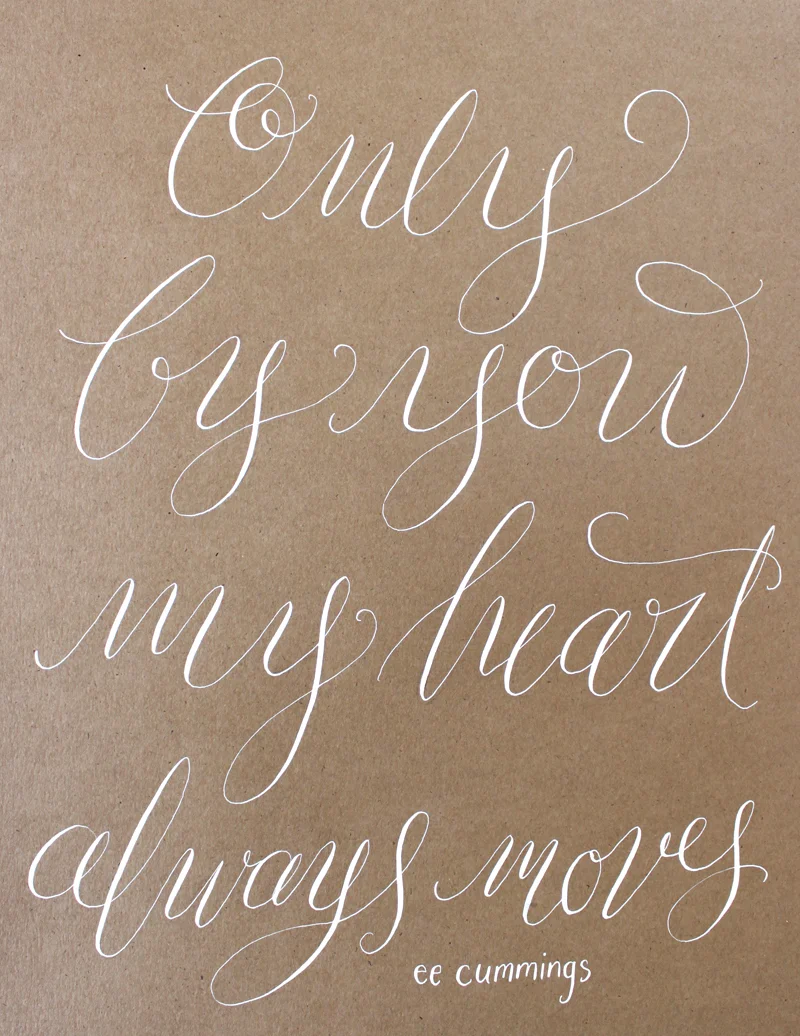 Only
by you
my heart
always moves
ee cummings